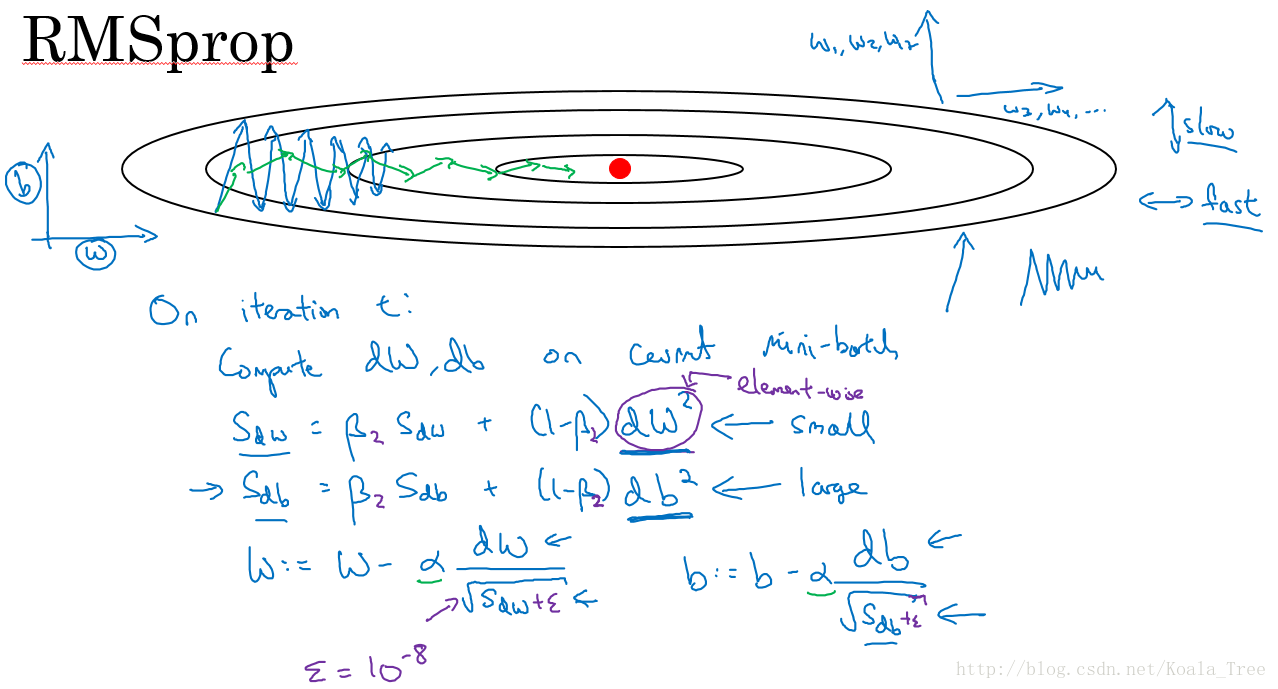 RMSprop
w₁, w₂, w₇
w₃, w₄, ...
slow
fast
b
w
On iteration t:
Compute dW, db on current mini-batch
element-wise
S_dw = β₂ S_dw + (1-β₂) dW² ← small
→ S_db = β₂ S_db + (1-β₂) db² ← large
W := W - α dW / √(S_dw + ε) ←
b := b - α db / √(S_db + ε) ←
ε = 10⁻⁸
http://blog.csdn.net/Koala_Tree